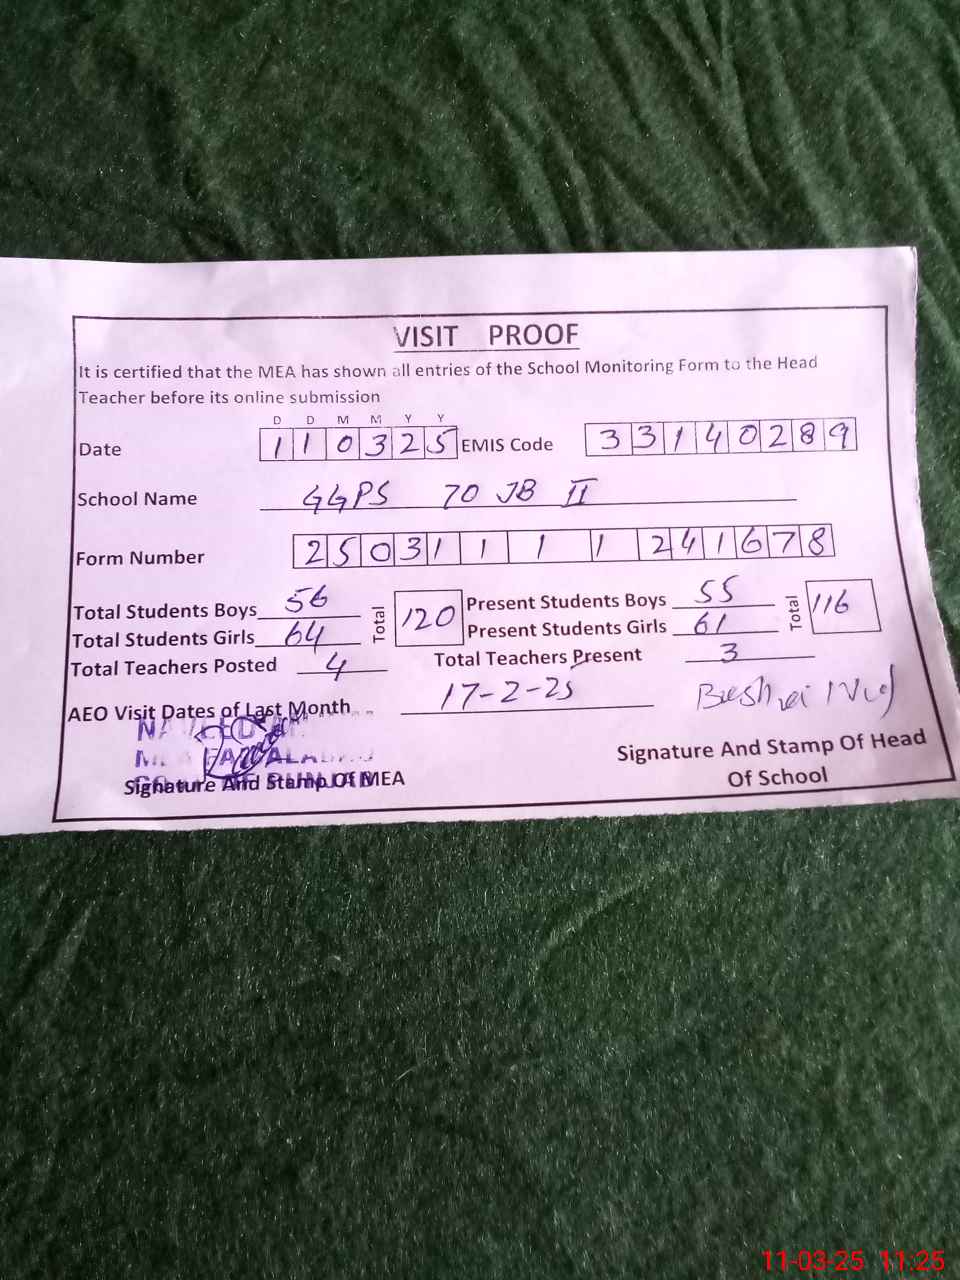 VISIT PROOF
It is certified that the MEA has shown all entries of the School Monitoring Form to the Head
Teacher before its online submission
D D M M Y Y
Date 1 1 0 3 2 5 EMIS Code 3 3 1 4 0 2 8 9
School Name GGPS 70 JB II
Form Number 2 5 0 3 1 1 1 1 2 4 1 6 7 8
Total Students Boys 56 Total 120 Present Students Boys 55 Total 116
Total Students Girls 64 Present Students Girls 61
Total Teachers Posted 4 Total Teachers Present 3
AEO Visit Dates of Last Month 17-2-25
Signature And Stamp Of MEA
Signature And Stamp Of Head
Of School
11-03-25 11:25